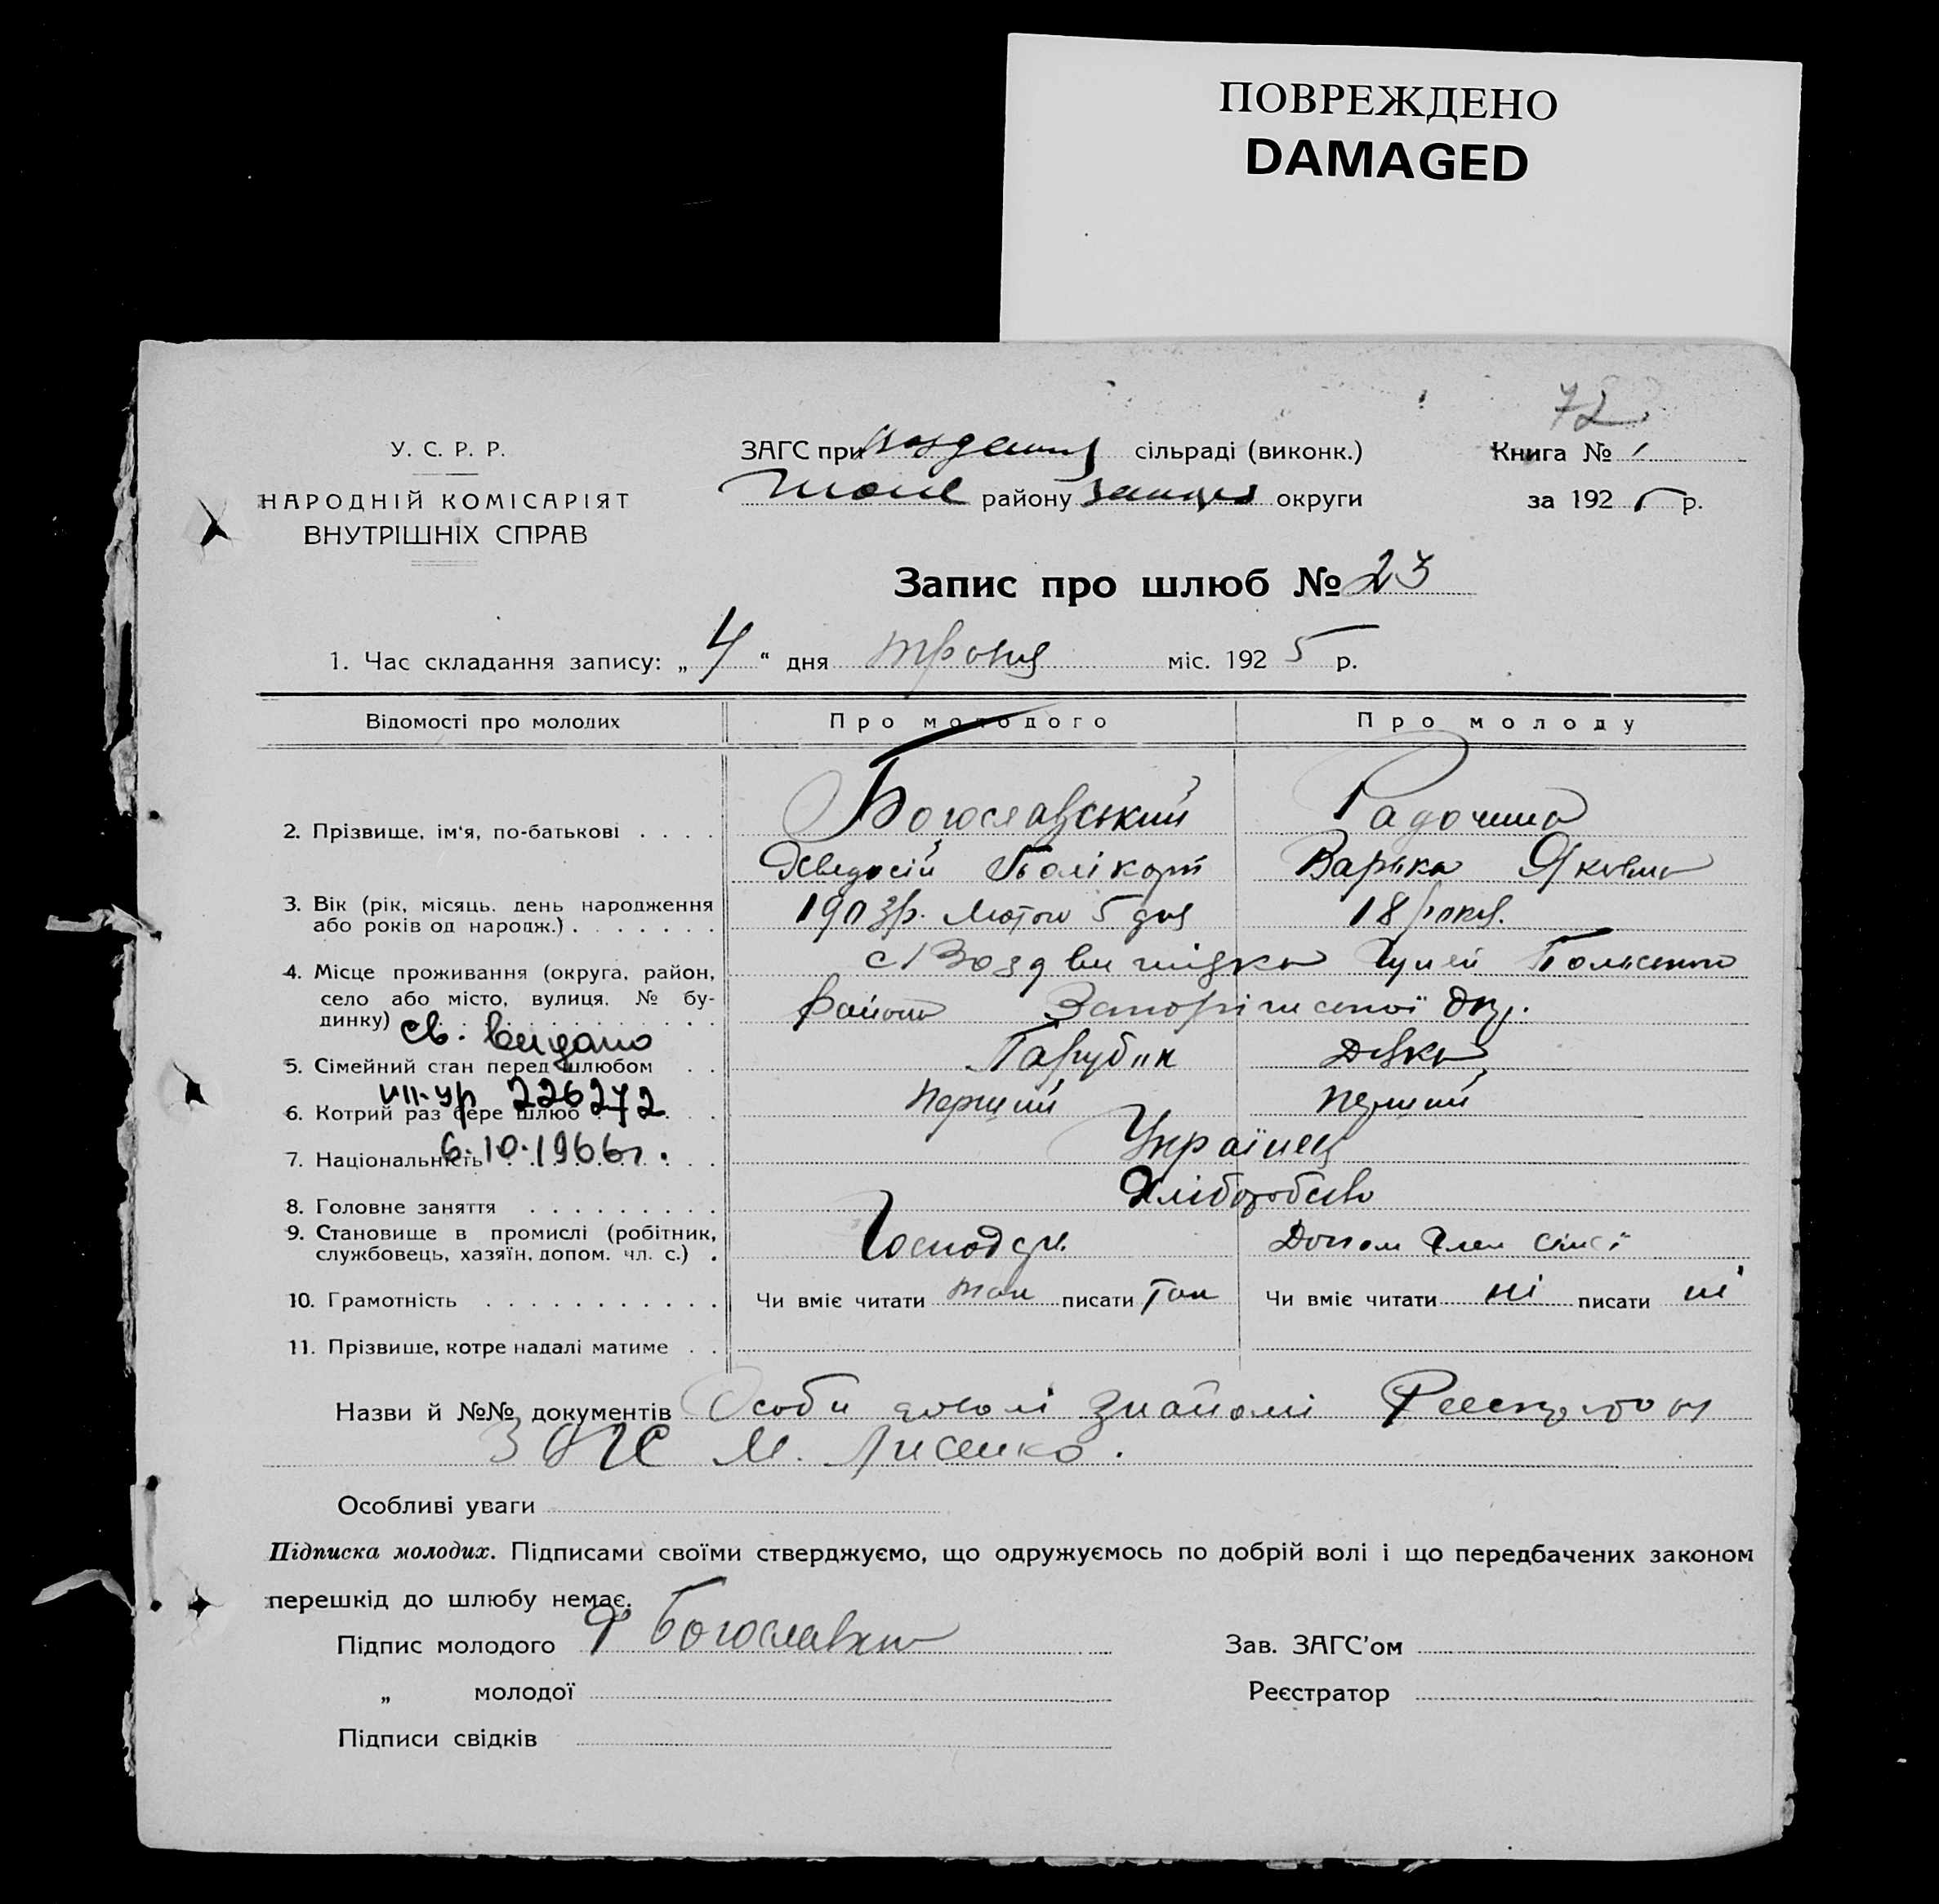 ПОВРЕЖДЕНО
DAMAGED
72
У. С. Р. Р.
НАРОДНІЙ КОМІСАРІЯТ
ВНУТРІШНІХ СПРАВ
ЗАГС при сільраді (виконк.)
району округи
Книга № 1
за 1925 р.
Запис про шлюб № 23
1. Час складання запису: „4“ дня міс. 1925 р.
Відомості про молодих Про молодого Про молоду
2. Прізвище, ім'я, по-батькові . . . . Богославський
Варька Яковна
3. Вік (рік, місяць, день народження 1903р. Лютого 5 дня 18 років.
або років од народж.) . . . . . . .
4. Місце проживання (округа, район, с. Воздвижівка
село або місто, вулиця, № бу- району Запоріжської Окр.
динку) . . . . . . . . . .
св. видано
5. Сімейний стан перед шлюбом . . Парубок Дівка
226272
6. Котрий раз бере шлюб . . . . Перший Перший
6.10.1966г.
7. Національність . . . . . . . Українец
8. Головне заняття . . . . . . . . . Хліборобство
9. Становище в промислі (робітник, Господарь Допом член сімї
службовець, хазяїн, допом. чл. с.) .
10. Грамотність . . . . . . . . . . . Чи вміє читати так писати так Чи вміє читати ні писати ні
11. Прізвище, котре надалі матиме . .
Назви й №№ документів Особи знайомі
ЗАГС М. Лисенко.
Особливі уваги
Підписка молодих. Підписами своїми стверджуємо, що одружуємось по добрій волі і що передбачених законом
перешкід до шлюбу немає.
Підпис молодого Ф Богославски
Зав. ЗАГС'ом
„ молодої
Реєстратор
Підписи свідків